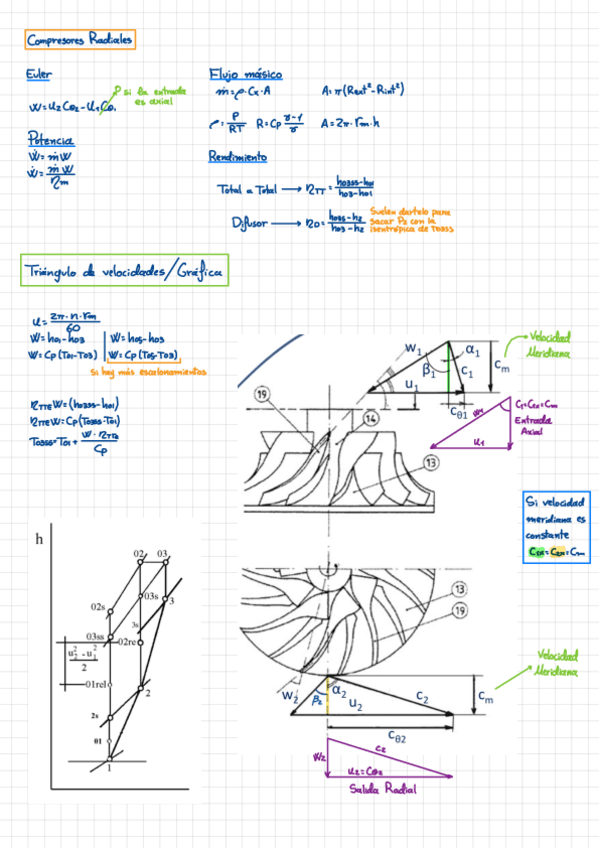 Compresores Radiales
Euler
W = U₂Cθ₂ - U₁Cθ₁
0 si la entrada es axial
Potencia
Ẇ = ṁW
Ẇ = ṁW / ηm
Flujo másico
ṁ = ρ · Cx · A
A = π(Rext² - Rint²)
ρ = P / RT
R = Cp (γ-1) / γ
A = 2π · rm · h
Rendimiento
Total a Total → ηTT = (h03ss - h01) / (h03 - h01)
Difusor → ηD = (h03s - h2) / (h03 - h2)
Suelen dartelo para
sacar P2 con la
isentrópica de T03ss
Triángulo de velocidades/Gráfica
u = 2π · n · rm / 60
W = h01 - h03
W = h05 - h03
W = Cp(T01 - T03)
W = Cp(T05 - T03)
Si hay más escalonamientos
ηTTe W = (h03ss - h01)
ηTTe W = Cp(T03ss - T01)
T03ss = T01 + W · ηTTe / Cp
w₁
α₁
β₁
c₁
cm
u₁
cθ1
Velocidad
Meridiana
19
14
13
C₁ = C₁x = Cm
Entrada
Axial
w₁
u₁
Si velocidad
meridiana es
constante
C1x = C2x = Cm
h
02
03
02s
03s
3s
3
03ss
02re
u₂² - u₁²
2
01rel
2
2s
01
1
13
19
w₂
β₂
α₂
u₂
c₂
cm
cθ2
Velocidad
Meridiana
w₂
c₂
u₂ = Cθ₂
Salida Radial